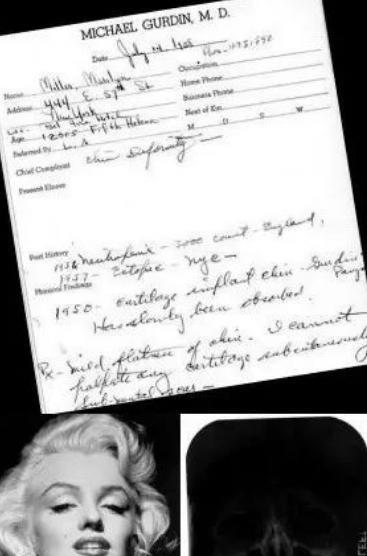 MICHAEL GURDIN, M. D.
Date July 14,
Name Miller, Marilyn
Occupation
Address 444 E. 57th St
Home Phone
New York
Business Phone
Age 12305 Fifth Helena
Next of Kin
Referred By L. A.
M D S W
Chief Complaint chin deformity —
Present Illness
Past History
1956 Neutropenia - 3000 count - England,
1957 - Ectopic - NYC —
Physical Findings
1950 - cartilage implant chin - Gurdin
Has slowly been absorbed.
Px - mild flatness of chin. I cannot
palpate any cartilage subcutaneously
Submental scar —